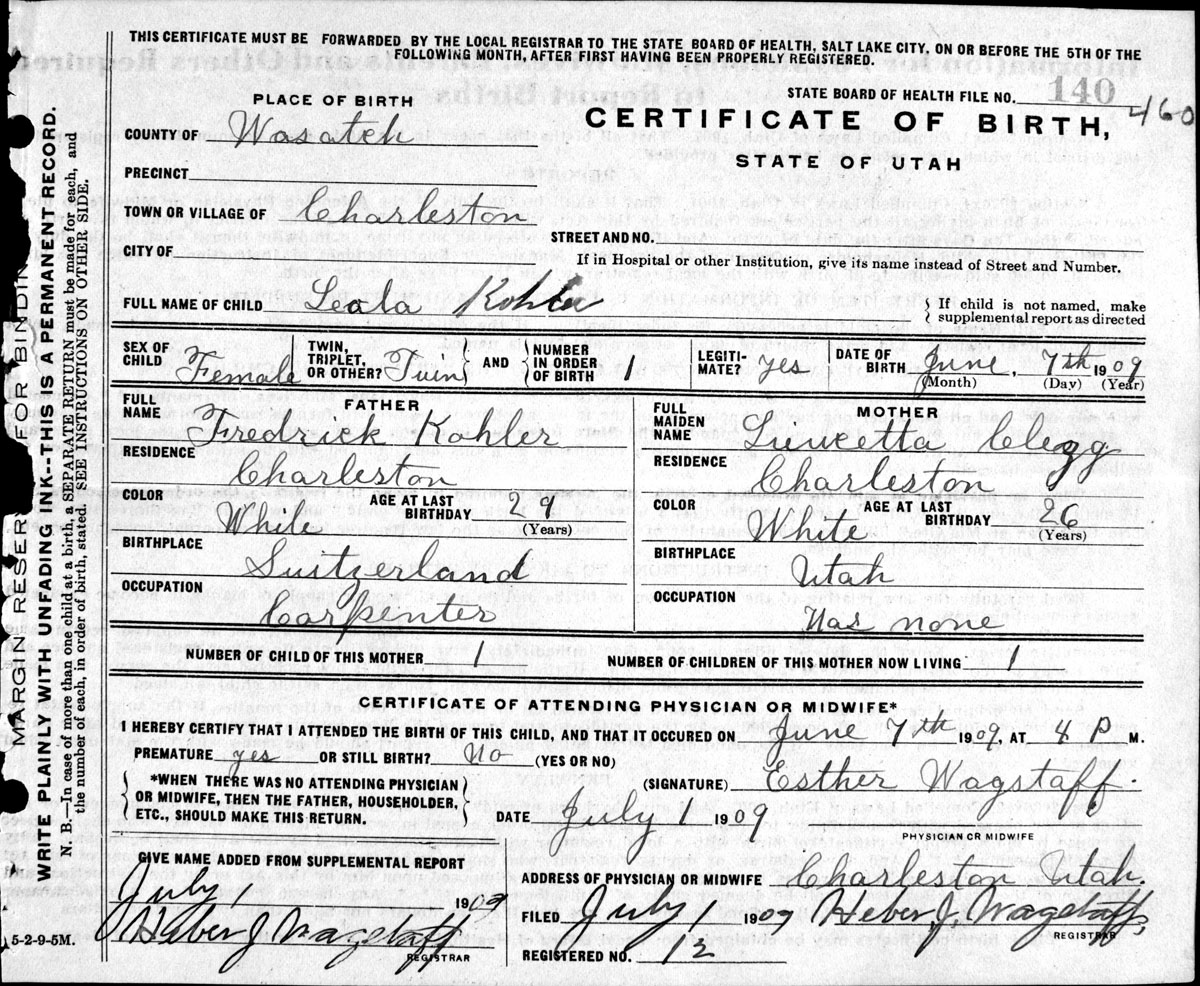 THIS CERTIFICATE MUST BE FORWARDED BY THE LOCAL REGISTRAR TO THE STATE BOARD OF HEALTH, SALT LAKE CITY, ON OR BEFORE THE 5TH OF THE
FOLLOWING MONTH, AFTER FIRST HAVING BEEN PROPERLY REGISTERED.
STATE BOARD OF HEALTH FILE NO. 140 460
PLACE OF BIRTH
CERTIFICATE OF BIRTH,
STATE OF UTAH
COUNTY OF Wasatch
PRECINCT
TOWN OR VILLAGE OF Charleston
STREET AND NO.
CITY OF
If in Hospital or other Institution, give its name instead of Street and Number.
FULL NAME OF CHILD Leala Kohler
If child is not named, make
supplemental report as directed
SEX OF CHILD Female TWIN, TRIPLET, OR OTHER? Twin AND NUMBER IN ORDER OF BIRTH 1 LEGITI- MATE? yes DATE OF BIRTH June, 7th 1909
(Month) (Day) (Year)
FATHER
FULL NAME Fredrick Kohler
RESIDENCE Charleston
COLOR White AGE AT LAST BIRTHDAY 29 (Years)
BIRTHPLACE Suitzerland
OCCUPATION Carpenter
MOTHER
FULL MAIDEN NAME Clegg
RESIDENCE Charleston
COLOR White AGE AT LAST BIRTHDAY 26 (Years)
BIRTHPLACE Utah
OCCUPATION Has none
NUMBER OF CHILD OF THIS MOTHER 1 NUMBER OF CHILDREN OF THIS MOTHER NOW LIVING 1
CERTIFICATE OF ATTENDING PHYSICIAN OR MIDWIFE*
I HEREBY CERTIFY THAT I ATTENDED THE BIRTH OF THIS CHILD, AND THAT IT OCCURED ON June 7th 1909, AT P M.
PREMATURE yes OR STILL BIRTH? No (YES OR NO)
*WHEN THERE WAS NO ATTENDING PHYSICIAN
OR MIDWIFE, THEN THE FATHER, HOUSEHOLDER,
ETC., SHOULD MAKE THIS RETURN.
(SIGNATURE) Esther Wagstaff
DATE July 1 1909
PHYSICIAN OR MIDWIFE
GIVE NAME ADDED FROM SUPPLEMENTAL REPORT
July 1 1909
Heber J Wagstaff
REGISTRAR
ADDRESS OF PHYSICIAN OR MIDWIFE Charleston Utah.
FILED July 1 1909 Heber J. Wagstaff
REGISTRAR
REGISTERED NO. 12
5-2-9-5M.
MARGIN RESERV FOR BINDIN
WRITE PLAINLY WITH UNFADING INK--THIS IS A PERMANENT RECORD.
N. B.—In case of more than one child at a birth, a SEPARATE RETURN must be made for each, and
the number of each, in order of birth, stated. SEE INSTRUCTIONS ON OTHER SIDE.